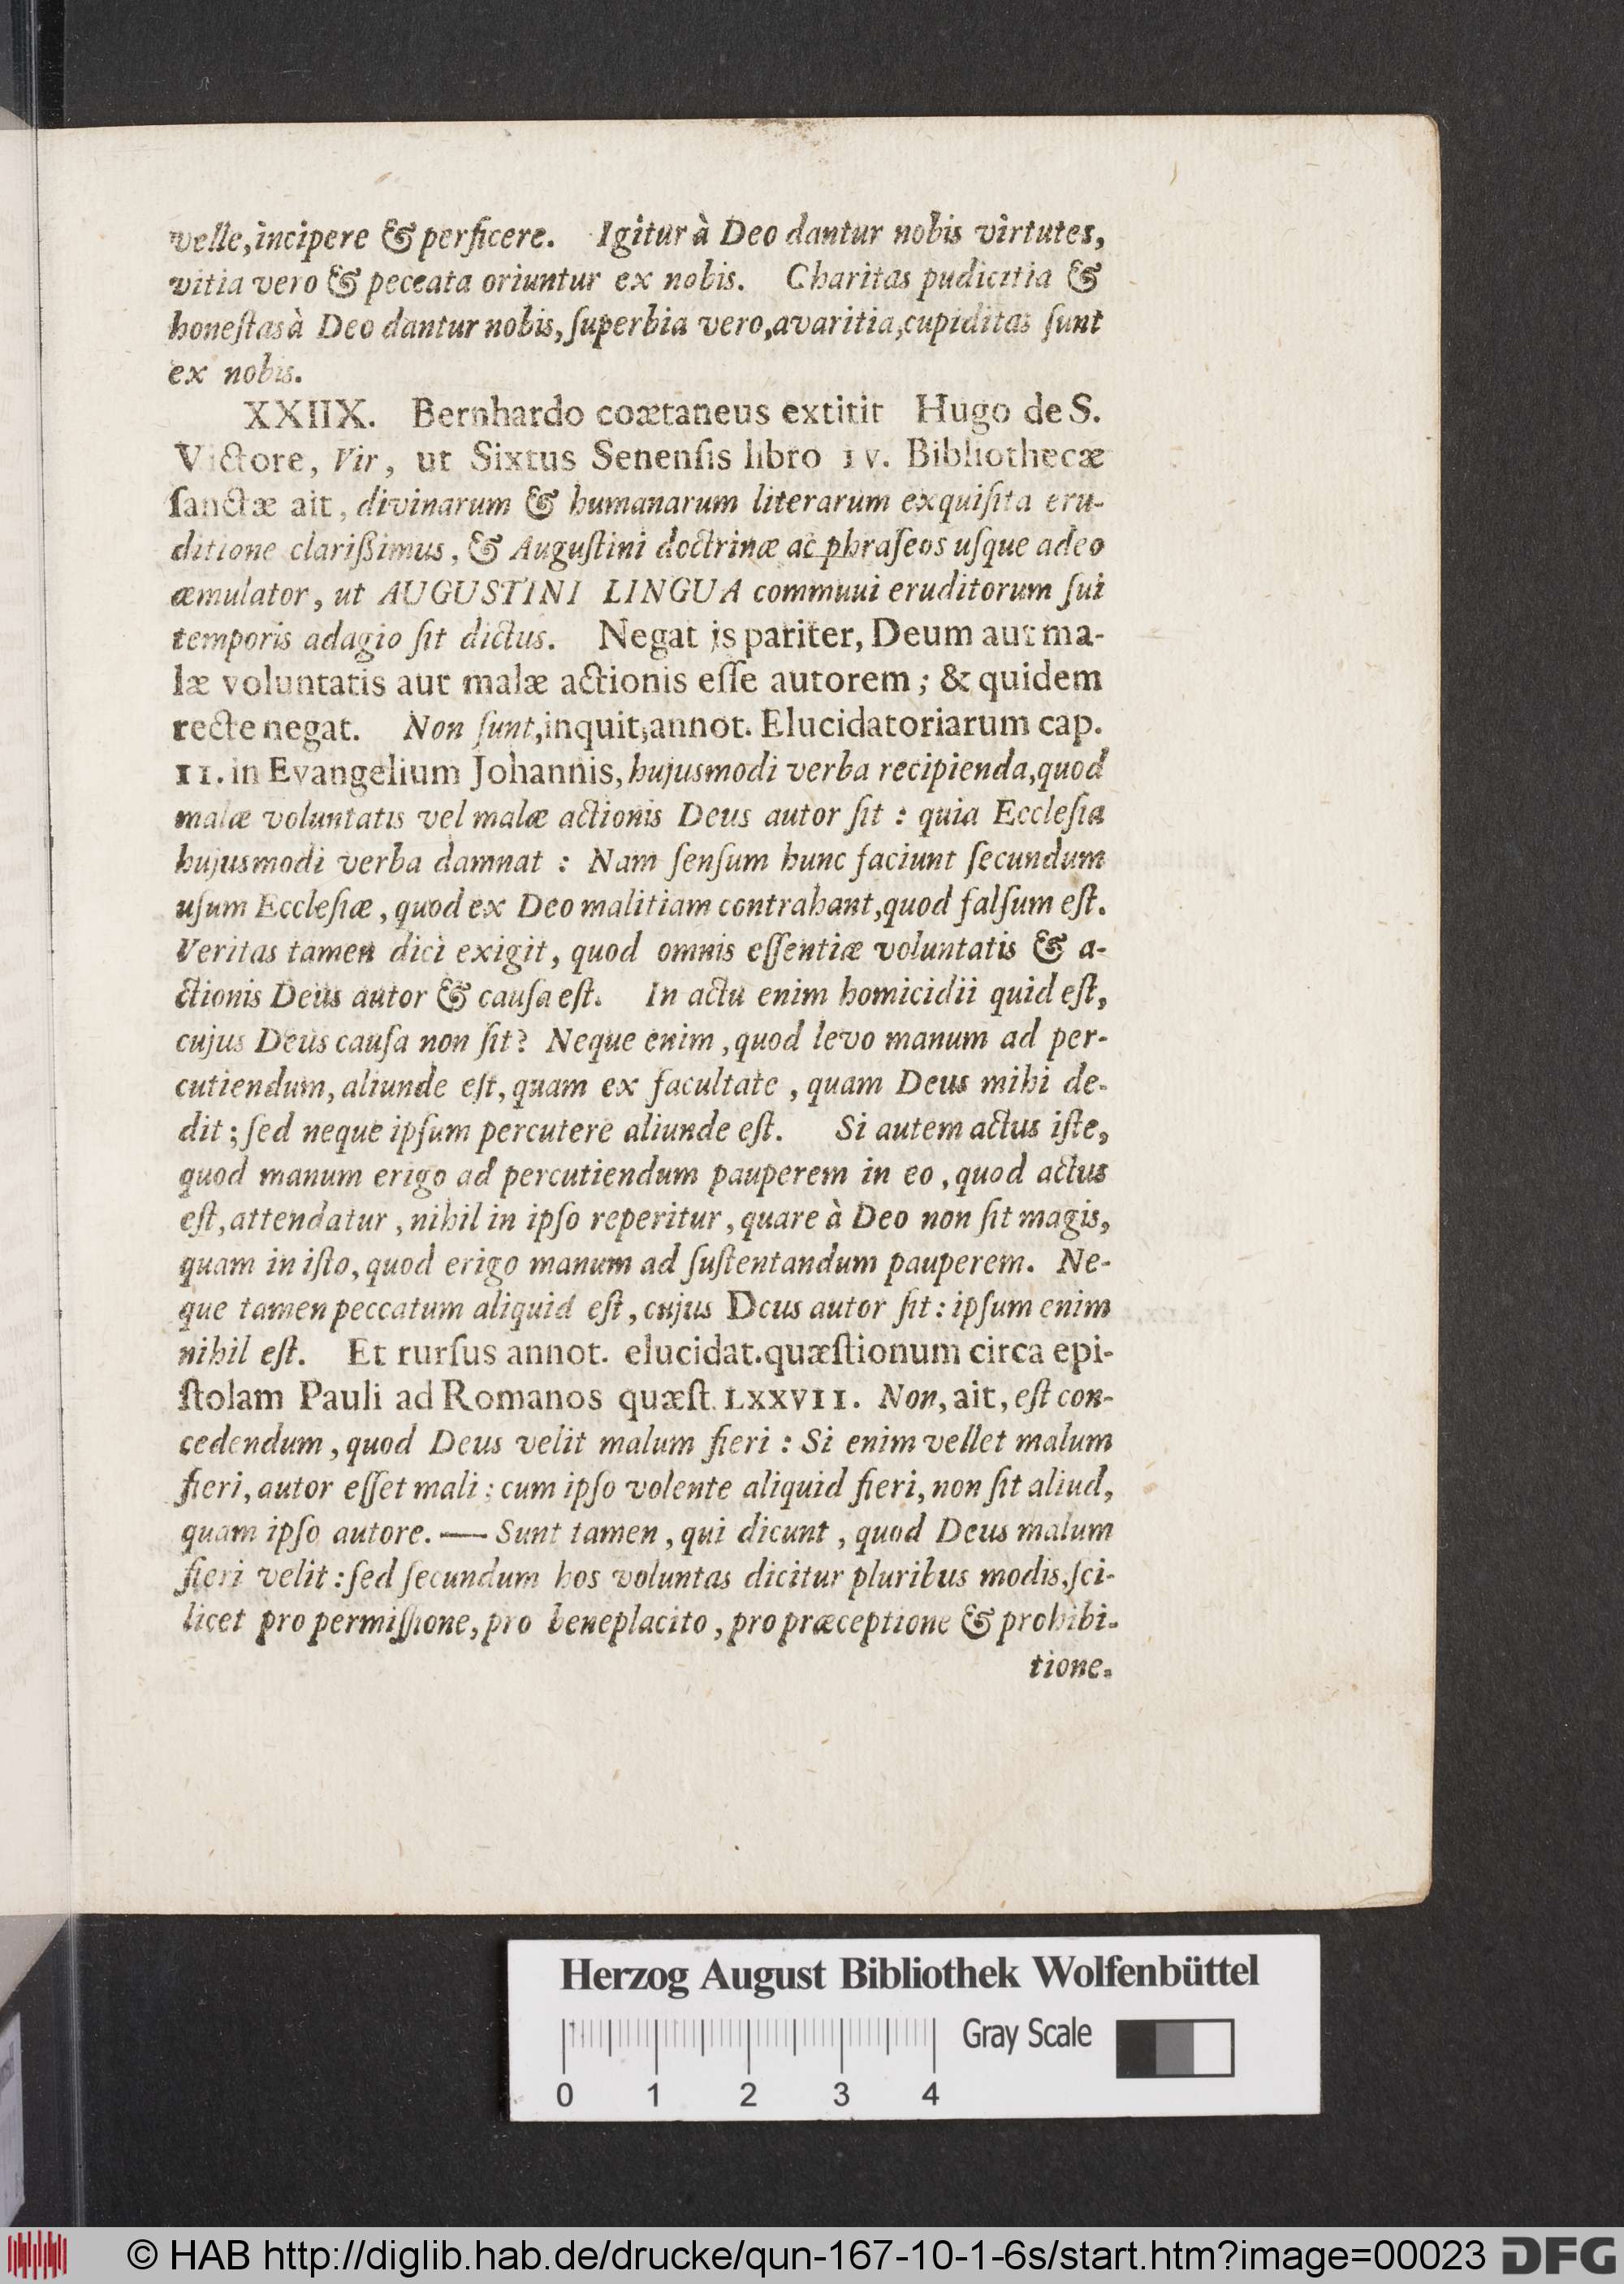 velle, incipere & perficere. Igitur à Deo dantur nobis virtutes,
vitia vero & peccata oriuntur ex nobis. Charitas pudicitia &
honeſtas à Deo dantur nobis, ſuperbia vero, avaritia, cupiditas ſunt
ex nobis.
XXIIX. Bernhardo coætaneus extitit Hugo de S.
Victore, Vir, ut Sixtus Senenſis libro IV. Bibliothecæ
ſanctæ ait, divinarum & humanarum literarum exquiſita eru-
ditione clarißimus, & Auguſtini doctrinæ ac phraſeos uſque adeo
æmulator, ut AUGUSTINI LINGUA commuui eruditorum ſui
temporis adagio ſit dictus. Negat is pariter, Deum aut ma-
læ voluntatis aut malæ actionis eſſe autorem; & quidem
recte negat. Non ſunt, inquit, annot. Elucidatoriarum cap.
II. in Evangelium Johannis, hujusmodi verba recipienda, quod
malæ voluntatis vel malæ actionis Deus autor ſit : quia Eccleſia
hujusmodi verba damnat : Nam ſenſum hunc faciunt ſecundum
uſum Eccleſiæ, quod ex Deo malitiam contrahant, quod falſum eſt.
Veritas tamen dici exigit, quod omnis eſſentiæ voluntatis & a-
ctionis Deus autor & cauſa eſt. In actu enim homicidii quid eſt,
cujus Deus cauſa non ſit? Neque enim, quod levo manum ad per-
cutiendum, aliunde eſt, quam ex facultate, quam Deus mihi de-
dit; ſed neque ipſum percutere aliunde eſt. Si autem actus iſte,
quod manum erigo ad percutiendum pauperem in eo, quod actus
eſt, attendatur, nihil in ipſo reperitur, quare à Deo non ſit magis,
quam in iſto, quod erigo manum ad ſuſtentandum pauperem. Ne-
que tamen peccatum aliquid eſt, cujus Deus autor ſit: ipſum enim
nihil eſt. Et rurſus annot. elucidat. quæſtionum circa epi-
ſtolam Pauli ad Romanos quæſt. LXXVII. Non, ait, eſt con-
cedendum, quod Deus velit malum fieri : Si enim vellet malum
fieri, autor eſſet mali: cum ipſo volente aliquid fieri, non ſit aliud,
quam ipſo autore. — Sunt tamen, qui dicunt, quod Deus malum
fieri velit: ſed ſecundum hos voluntas dicitur pluribus modis, ſci-
licet pro permiſſione, pro beneplacito, pro præceptione & prohibi-
tione.
Herzog August Bibliothek Wolfenbüttel
Gray Scale
0 1 2 3 4
© HAB http://diglib.hab.de/drucke/qun-167-10-1-6s/start.htm?image=00023 DFG